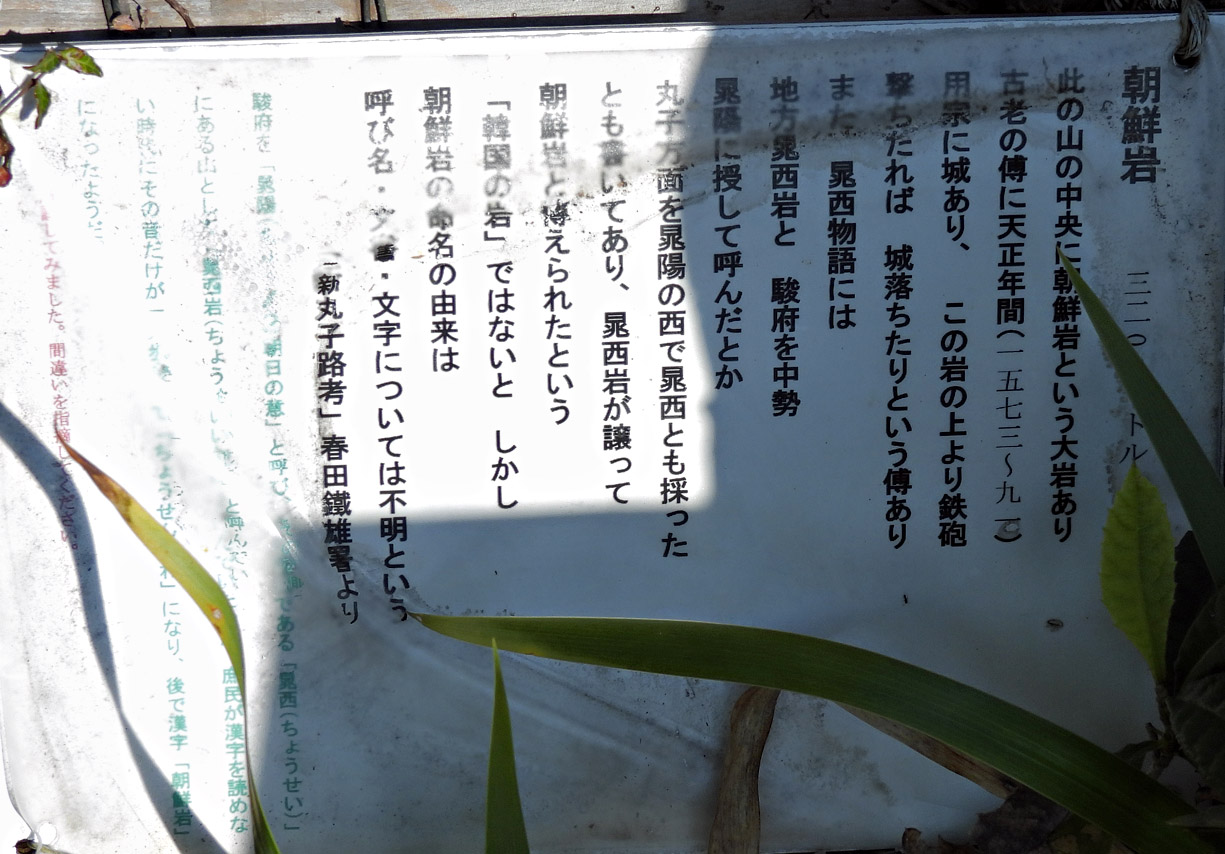 朝鮮岩 三二〇 トル
此の山の中央に朝鮮岩という大岩あり
古老の傳に天正年間(一五七三~九一)
用宗に城あり、 この岩の上より鉄砲
撃ちたれば 城落ちたりという傅あり
また 晁西物語には
地方晁西岩と 駿府を中勢
晁陽に授して呼んだとか
丸子方面を晁陽の西で晁西とも採った
とも書いてあり、 晁西岩が譲って
朝鮮岩と傅えられたという
「韓国の岩」ではないと しかし
朝鮮岩の命名の由来は
呼び名・ ・文字については不明という
新丸子路考」春田鐵雄署より
駿府を「晁陽 朝日の意」と呼び、 である「晁西(ちょうせい)」
にある山とし 岩(ちょう と 庶民が漢字を読めな
い時代にその音だけが 」になり、後で漢字「朝鮮岩」
になったようだ
してみました。間違いを指摘してください。